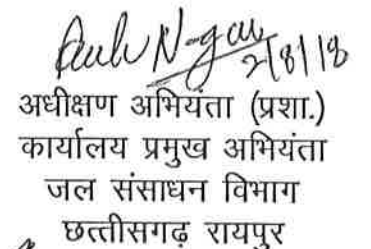 2/8/18
अधीक्षण अभियंता (प्रशा.)
कार्यालय प्रमुख अभियंता
जल संसाधन विभाग
छत्तीसगढ़ रायपुर